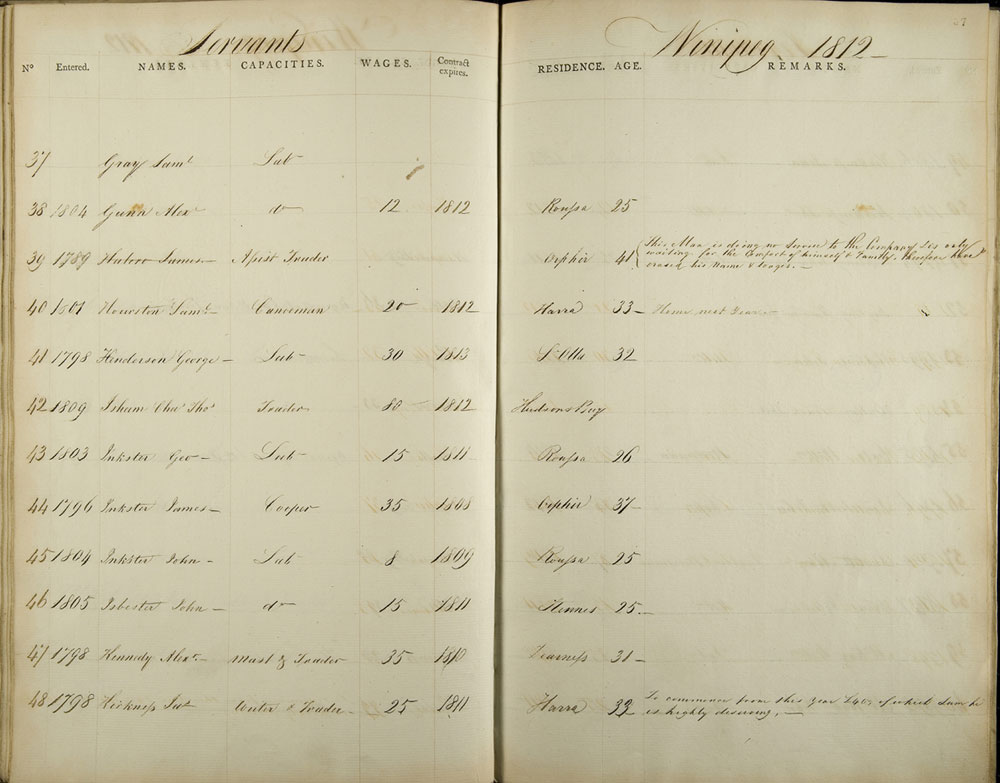 Servants
Winipeg 1812
No Entered. NAMES. CAPACITIES. WAGES. Contract expires. RESIDENCE. AGE. REMARKS.
37 Gray Saml Lab
38 1804 Gunn Alexr do 12 1812 Rousa 25
39 1789 James Trader Orphir 41 This Man is doing no Service to the Company & is only
waiting for the Comfort of himself & Family, therefore have
erased his Name & Wages.
40 1801 Hourston Saml Canoeman 20 1812 Harra 33 Home next Year
41 1798 Henderson George Lab 30 1813 32
42 1809 Isham Chas Thos Trader 80 1812 Hudsons Bay
43 1803 Inkster Geo Lab 15 1811 Rousa 26
44 1796 Inkster James Cooper 35 1808 Orphir 37
45 1804 Inkster John Lab 8 1809 Rousa 25
46 1805 Isbester John do 15 1811 25
47 1798 Kennedy Alexr Mastr & Trader 35 1810 31
48 1798 & Trader 25 1811 Harra 32 To commence from this Year of which Sum he
is highly deserving.